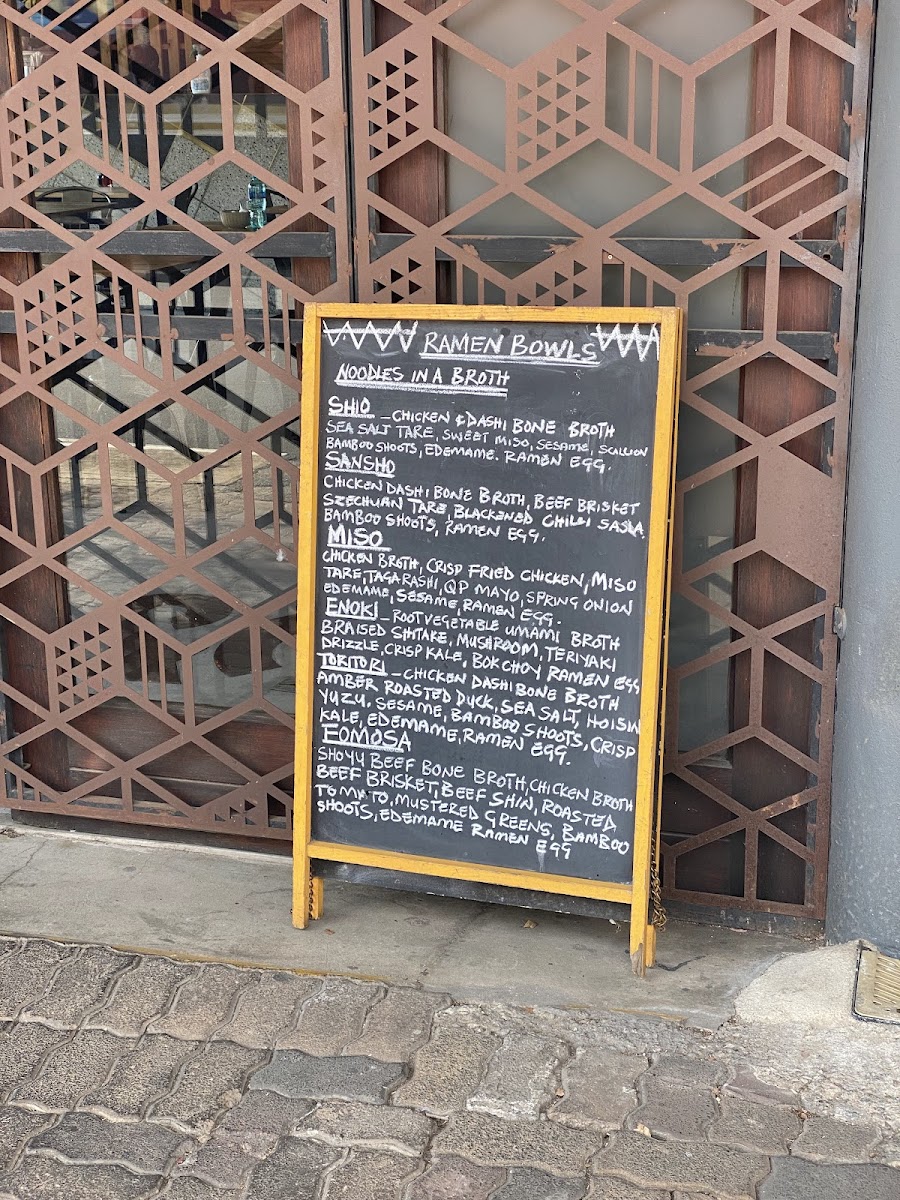 RAMEN BOWLS
NOODLES IN A BROTH
SHIO _ CHICKEN & DASHI BONE BROTH
SEA SALT TARE, SWEET MISO, SESAME, SCALLION
BAMBOO SHOOTS, EDEMAME. RAMEN EGG.
SANSHO
CHICKEN DASHI BONE BROTH, BEEF BRISKET
SZECHUAN TARE, BLACKENED CHILLI SALSA
BAMBOO SHOOTS, RAMEN EGG.
MISO
CHICKEN BROTH, CRISP FRIED CHICKEN, MISO
TARE, TAGARASHI, QP MAYO, SPRING ONION
EDEMAME, SESAME, RAMEN EGG.
ENOKI _ ROOT VEGETABLE UMAMI BROTH
BRAISED SHITAKE, MUSHROOM, TERIYAKI
DRIZZLE, CRISP KALE, BOK CHOY RAMEN EGG
TORITORI _ CHICKEN DASHI BONE BROTH
AMBER ROASTED DUCK, SEA SALT, HOISIN
YUZU. SESAME, BAMBOO SHOOTS, CRISP
KALE, EDEMAME, RAMEN EGG.
FOMOSA
SHOYU BEEF BONE BROTH, CHICKEN BROTH
BEEF BRISKET, BEEF SHIN, ROASTED
TOMATO, MUSTERED GREENS, BAMBOO
SHOOTS, EDEMAME RAMEN EGG